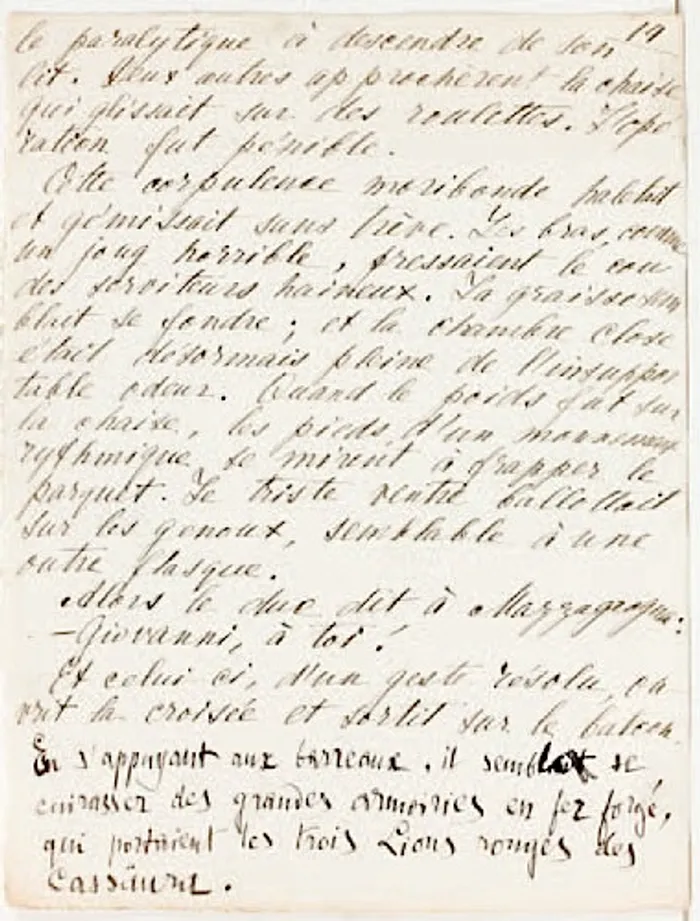 19
le paralytique à descendre de son
lit. Deux autres approchèrent la chaise
qui glissait sur des roulettes. L'opé
ration fut pénible.
Cette corpulence moribonde haletait
et gémissait sans trève. Les bras, comme
un joug horrible, pressaient le cou
des serviteurs haineux. La graisse sem
blait se fondre ; et la chambre close
était désormais pleine de l'insuppor
table odeur. Quand le poids fut sur
la chaise, les pieds d'un mouvement
rythmique se mirent à frapper le
parquet. Le triste ventre ballottait
sur les genoux, semblable à une
outre flasque.
Alors le duc dit à Mazzagrogna:
– Giovanni, à toi !
Et celui ci, d'un geste résolu, ou
vrit la croisée et sortit sur le balcon.
En s'appuyant aux barreaux, il semblait se
cuirasser des grandes armoiries en fer forgé,
qui portaient les trois Lions rouges des
Cassàura.